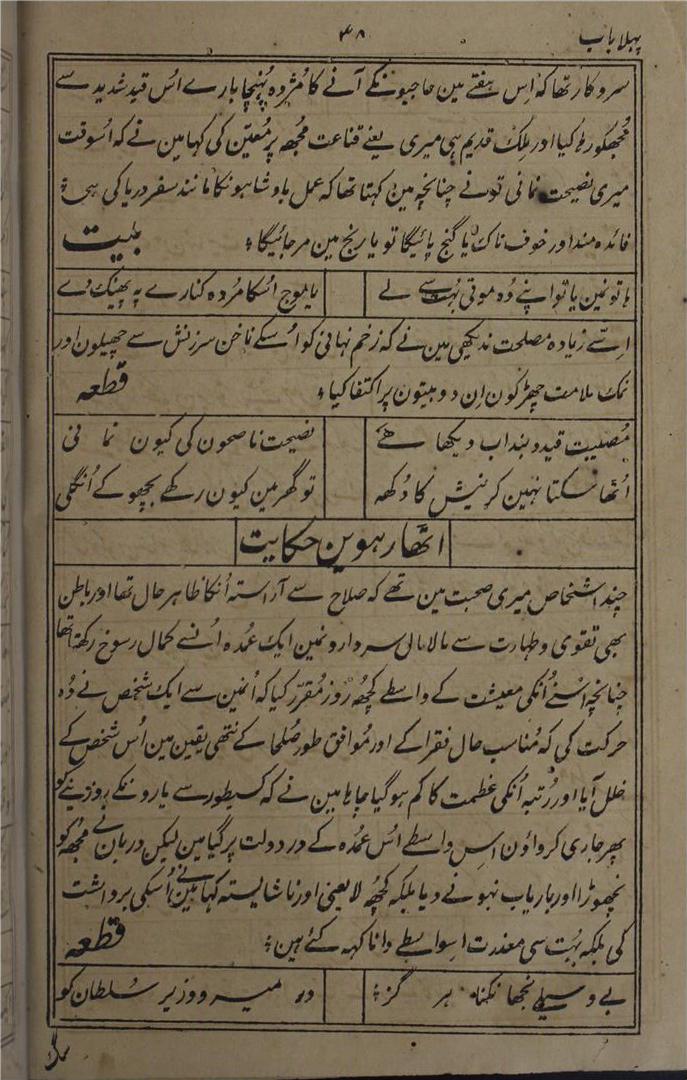 پہلا باب
۴۸
سروکار تھا کہ اِس ہفتے مین حاجیونکے آنے کا مُژدہ پُہنچا بارے اُس قید شدید سے
مُجھکو رہا کیا اور مِلک قدیم ہی میری یعنے قناعت مُجھ پر مُعیّن کی کہا مین نے کہ اُسوقت
میری نصیحت نمانی تو نے چنانچہ مین کہتا تھا کہ عمل بادشاہونکا مانند سفر دریا کی ہی
فائدہ مند اور خوف ناک یا گنج پائیگا تو یا رنج مین مرجائیگا
بیت
ہاتونمین یا تو اپنے دُہ موتی بُہت سے لے
یا موج اُسکا مُردہ کنارے پہ پھینک دے
اِسّے زیادہ مصلحت ندیکھی مین نے کہ زخم نہانی کو اُسکے ناخن سرزنش سے چھیلون اور
نمک ملامت چھڑکون اِن دو بیتون پر اکتفا کیا
قطعہ
مُصیبت قید و بند اب دیکھا ہے
نصیحت ناصحون کی کیون نمانی
اُٹھا سکتا نہین کر نیش کا دُکھ
تو گھر مین کیون رکھے بچھو کے اُنگلی
اٹھارہوین حکایت
چند اشخاص میری صحبت مین تھے کہ صلاح سے آراستہ اُنکا ظاہر حال تھا اور باطن
بھی تقوی و طہارت سے مالامال سردارونمین ایک عُمدہ اُنسے کمال رسوخ رکھتا تھا
چنانچہ اُسنے اُنکی معیشت کے واسطے کچھ روز مُقرّر کیا کہ اُنمین سے ایک شخص نے دُہ
حرکت کی کہ مُناسب حال فقرا کے اور مُوافق طور صُلحا کے نتھی یقین مین اُس شخص کے
خلل آیا اور رُتبہ اُنکی عظمت کا کم ہو گیا چاہا مین نے کہ کسیطور سے یارونکے روزینے کو
پھر جاری کرواؤن اِس واسطے اُس عُمدہ کے در دولت پر گیا مین لیکن دربان نے مجھ کو
نچھوڑا اور باریاب نہونے دیا بلکہ کچُھ لایعنی اور ناشایستہ کہا مینے اُسکی برداشت
کی بلکہ بُہت سی معذرت اِسواسطے دانا کہہ گئے ہین
قطعہ
بے وسیلے نجھانکنا ہر گز
در میر و وزیر سُلطان کو